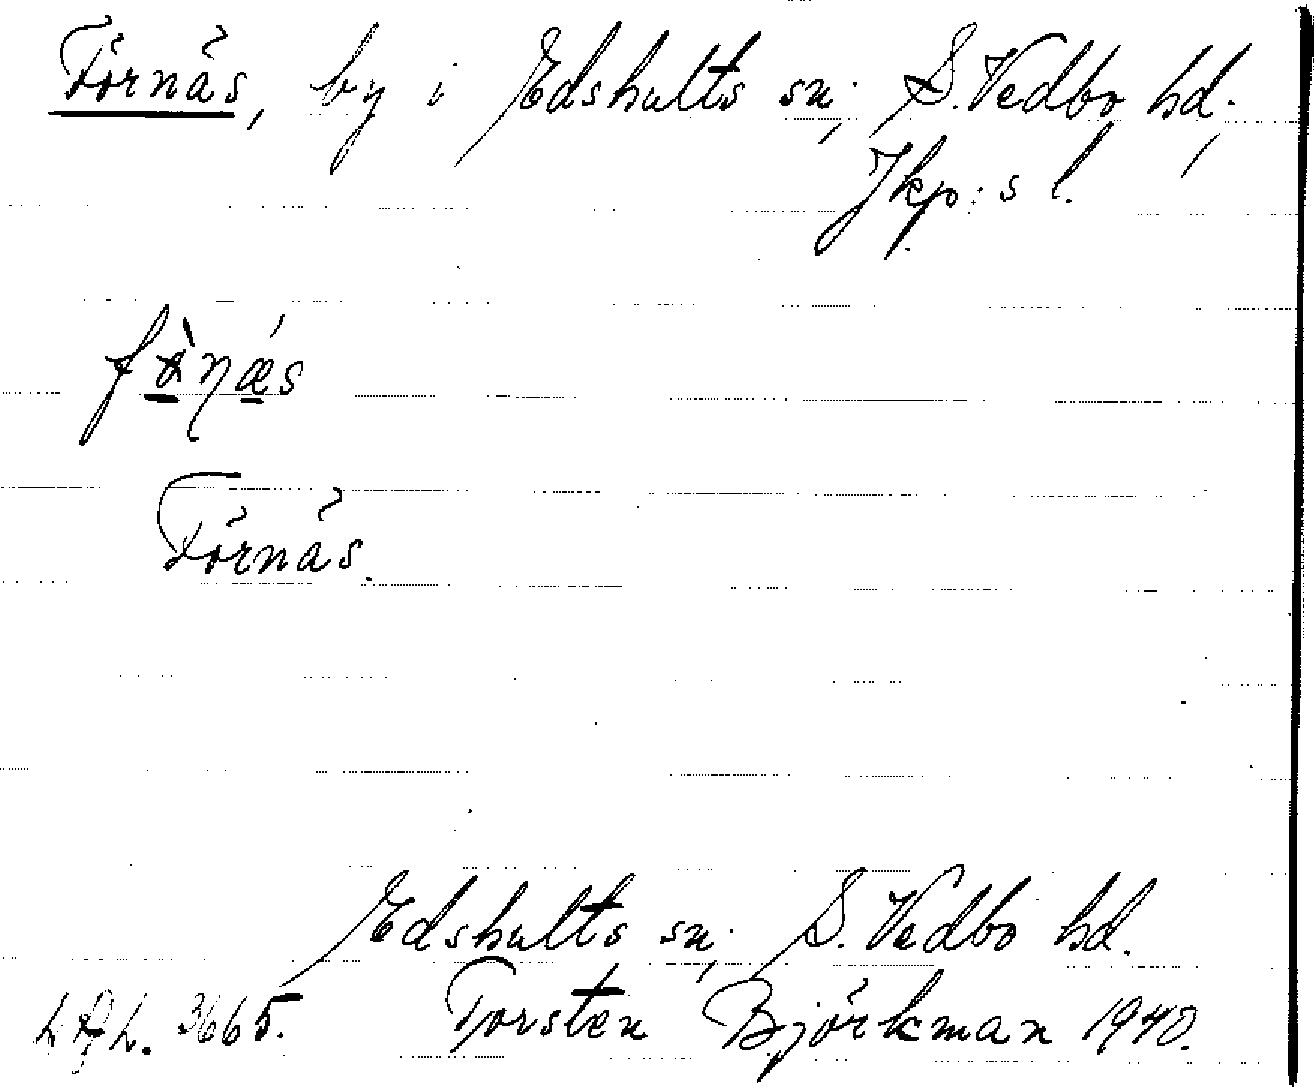 Förnäs, by i Edshults sn; S. Vedbo hd;
Jkp:s l.
Förnäs.
Edshults sn; S. Vedbo hd.
3665. Torsten Björkman 1940.